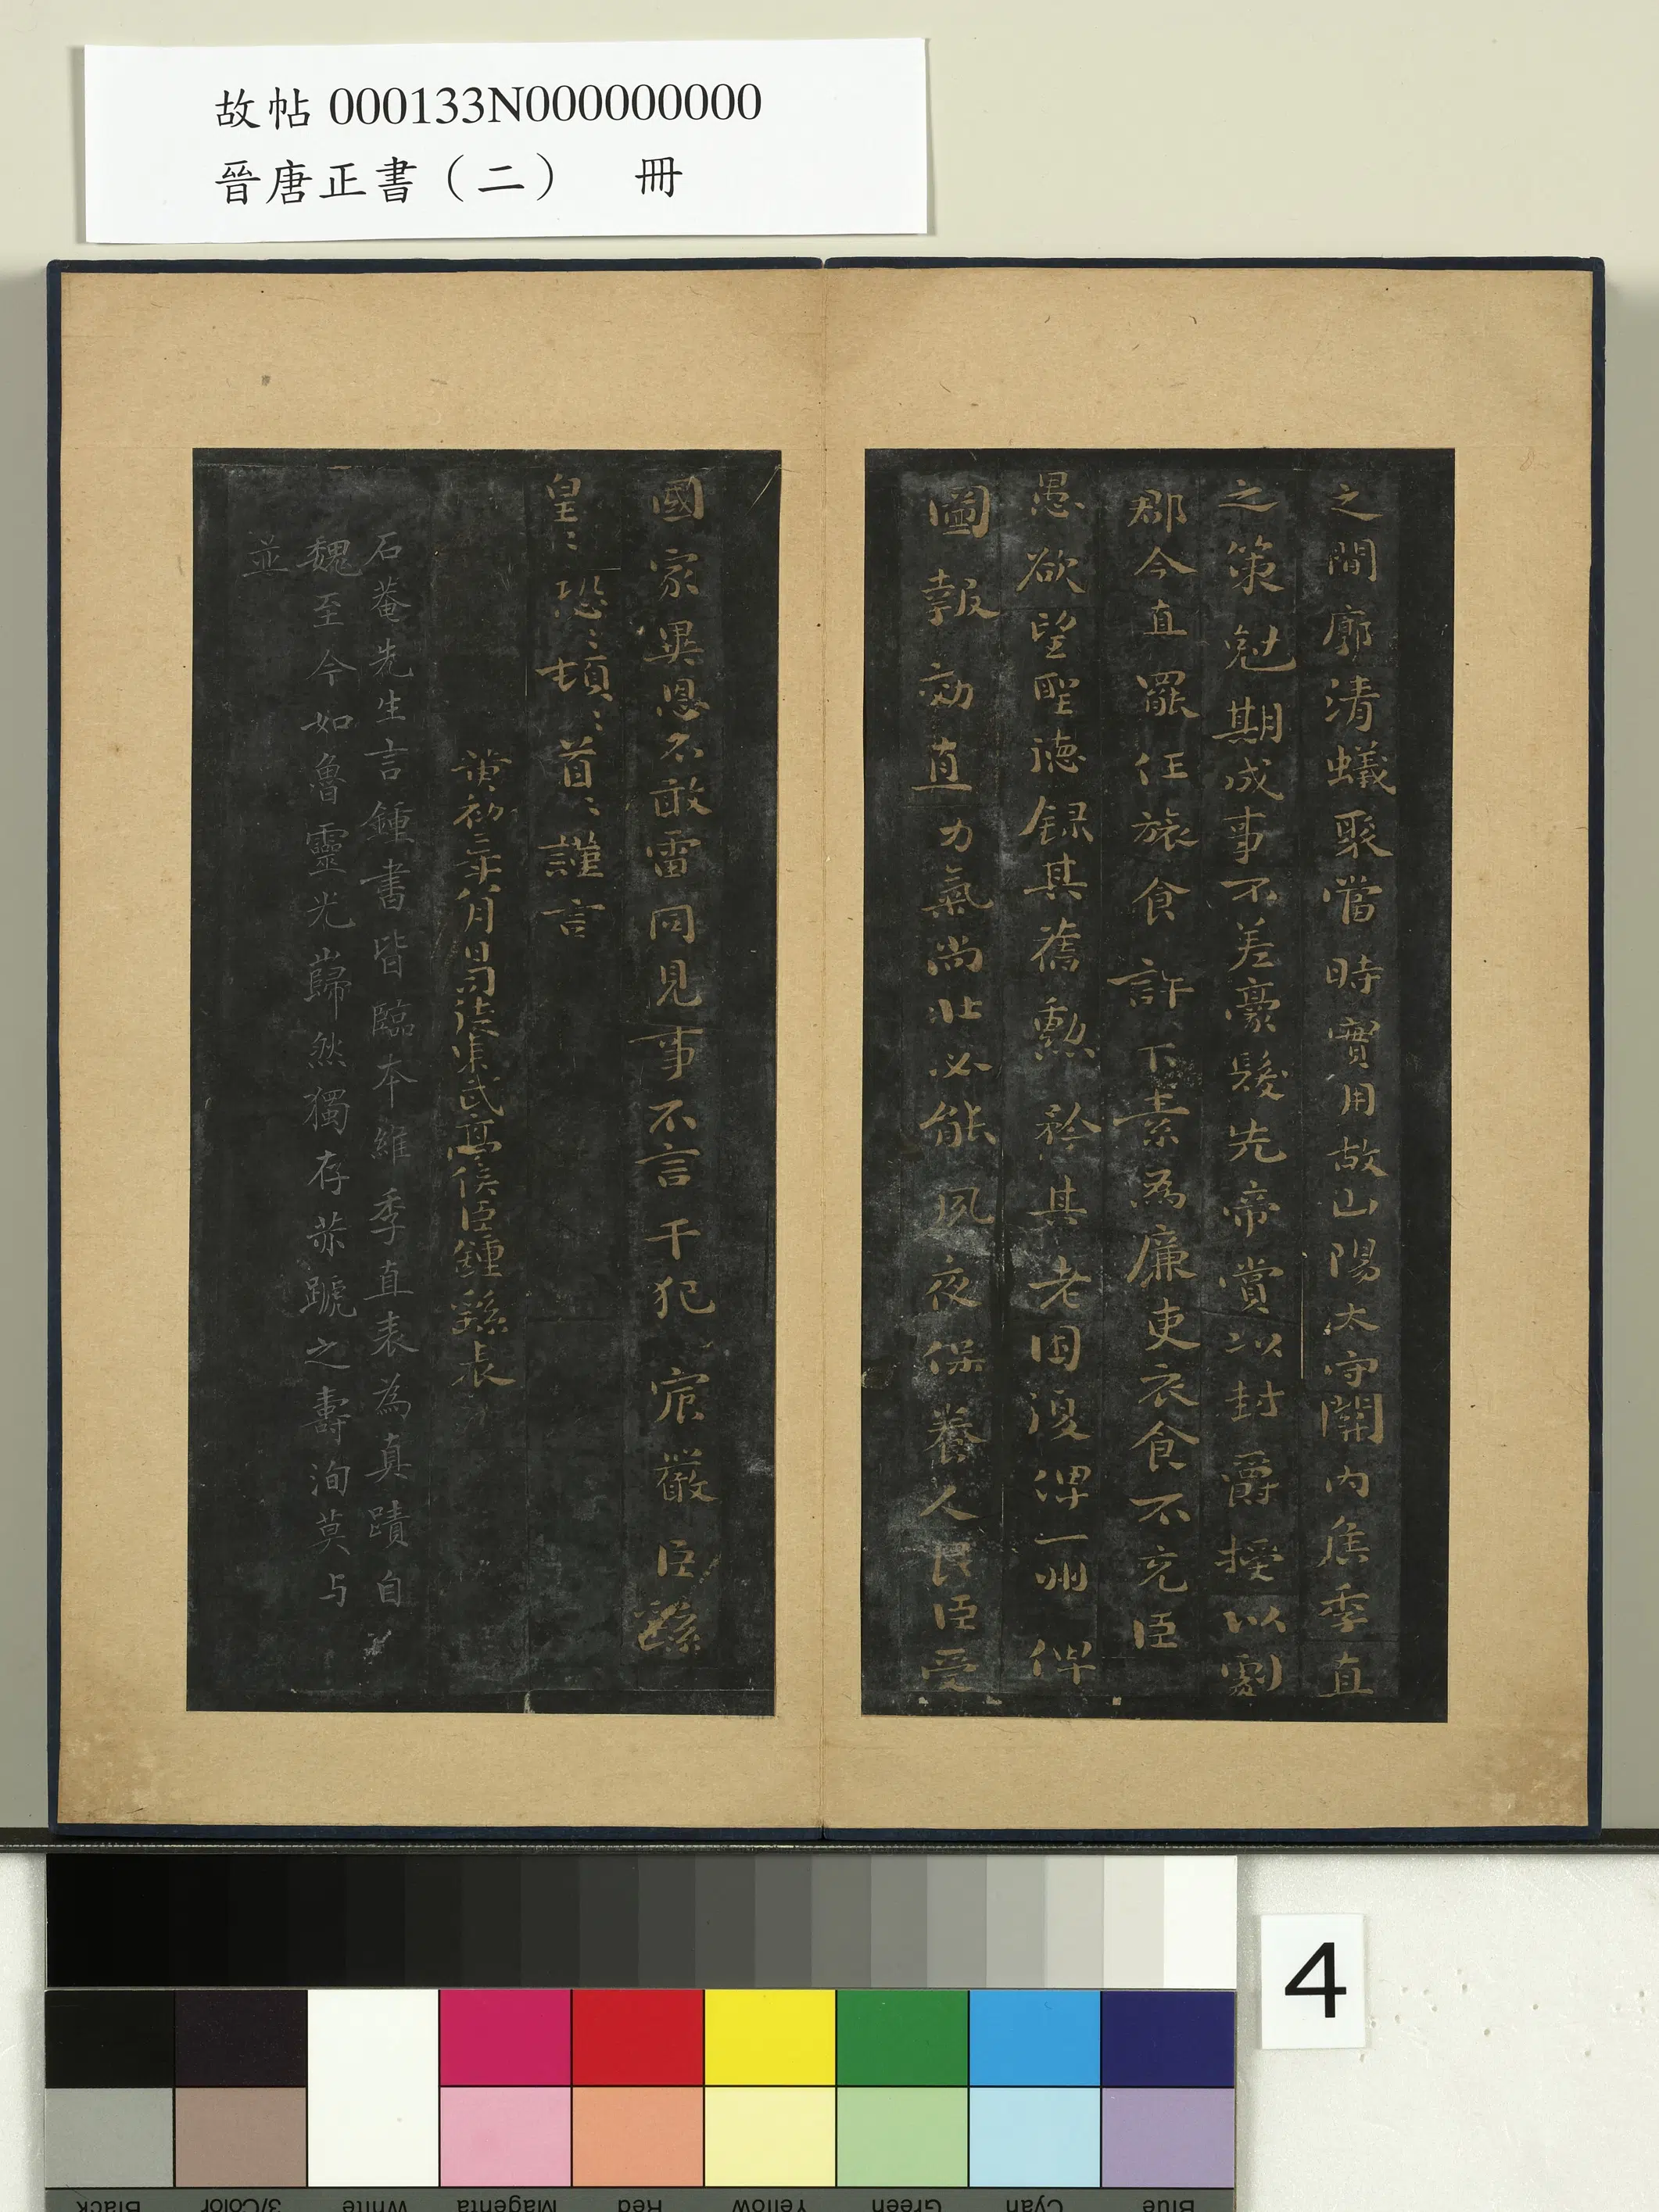 故帖 000133N000000000
晉唐正書（二）　冊
之間廓清蟻聚當時實用故山陽太守關內侯季直
之策尅期成事不差豪髮先帝賞以封爵授以劇
郡今直罷任旅食許下素為廉吏衣食不充臣
愚欲望聖德録其舊勲矜其老困復俾一州俾
圖報効直力氣尚壯必能夙夜保養人民臣受
國家異恩不敢雷同見事不言干犯宸嚴臣繇
皇〻恐〻頓〻首〻謹言
黃初二年八月日司徒東武亭侯臣鍾繇表
石菴先生言鍾書皆臨本維季直表為真蹟自
魏至今如魯靈光巋然獨存茶蹏之壽洵莫与
並
4
Black
3/Color
White
Magenta
Red
Yellow
Green
Cyan
Blue